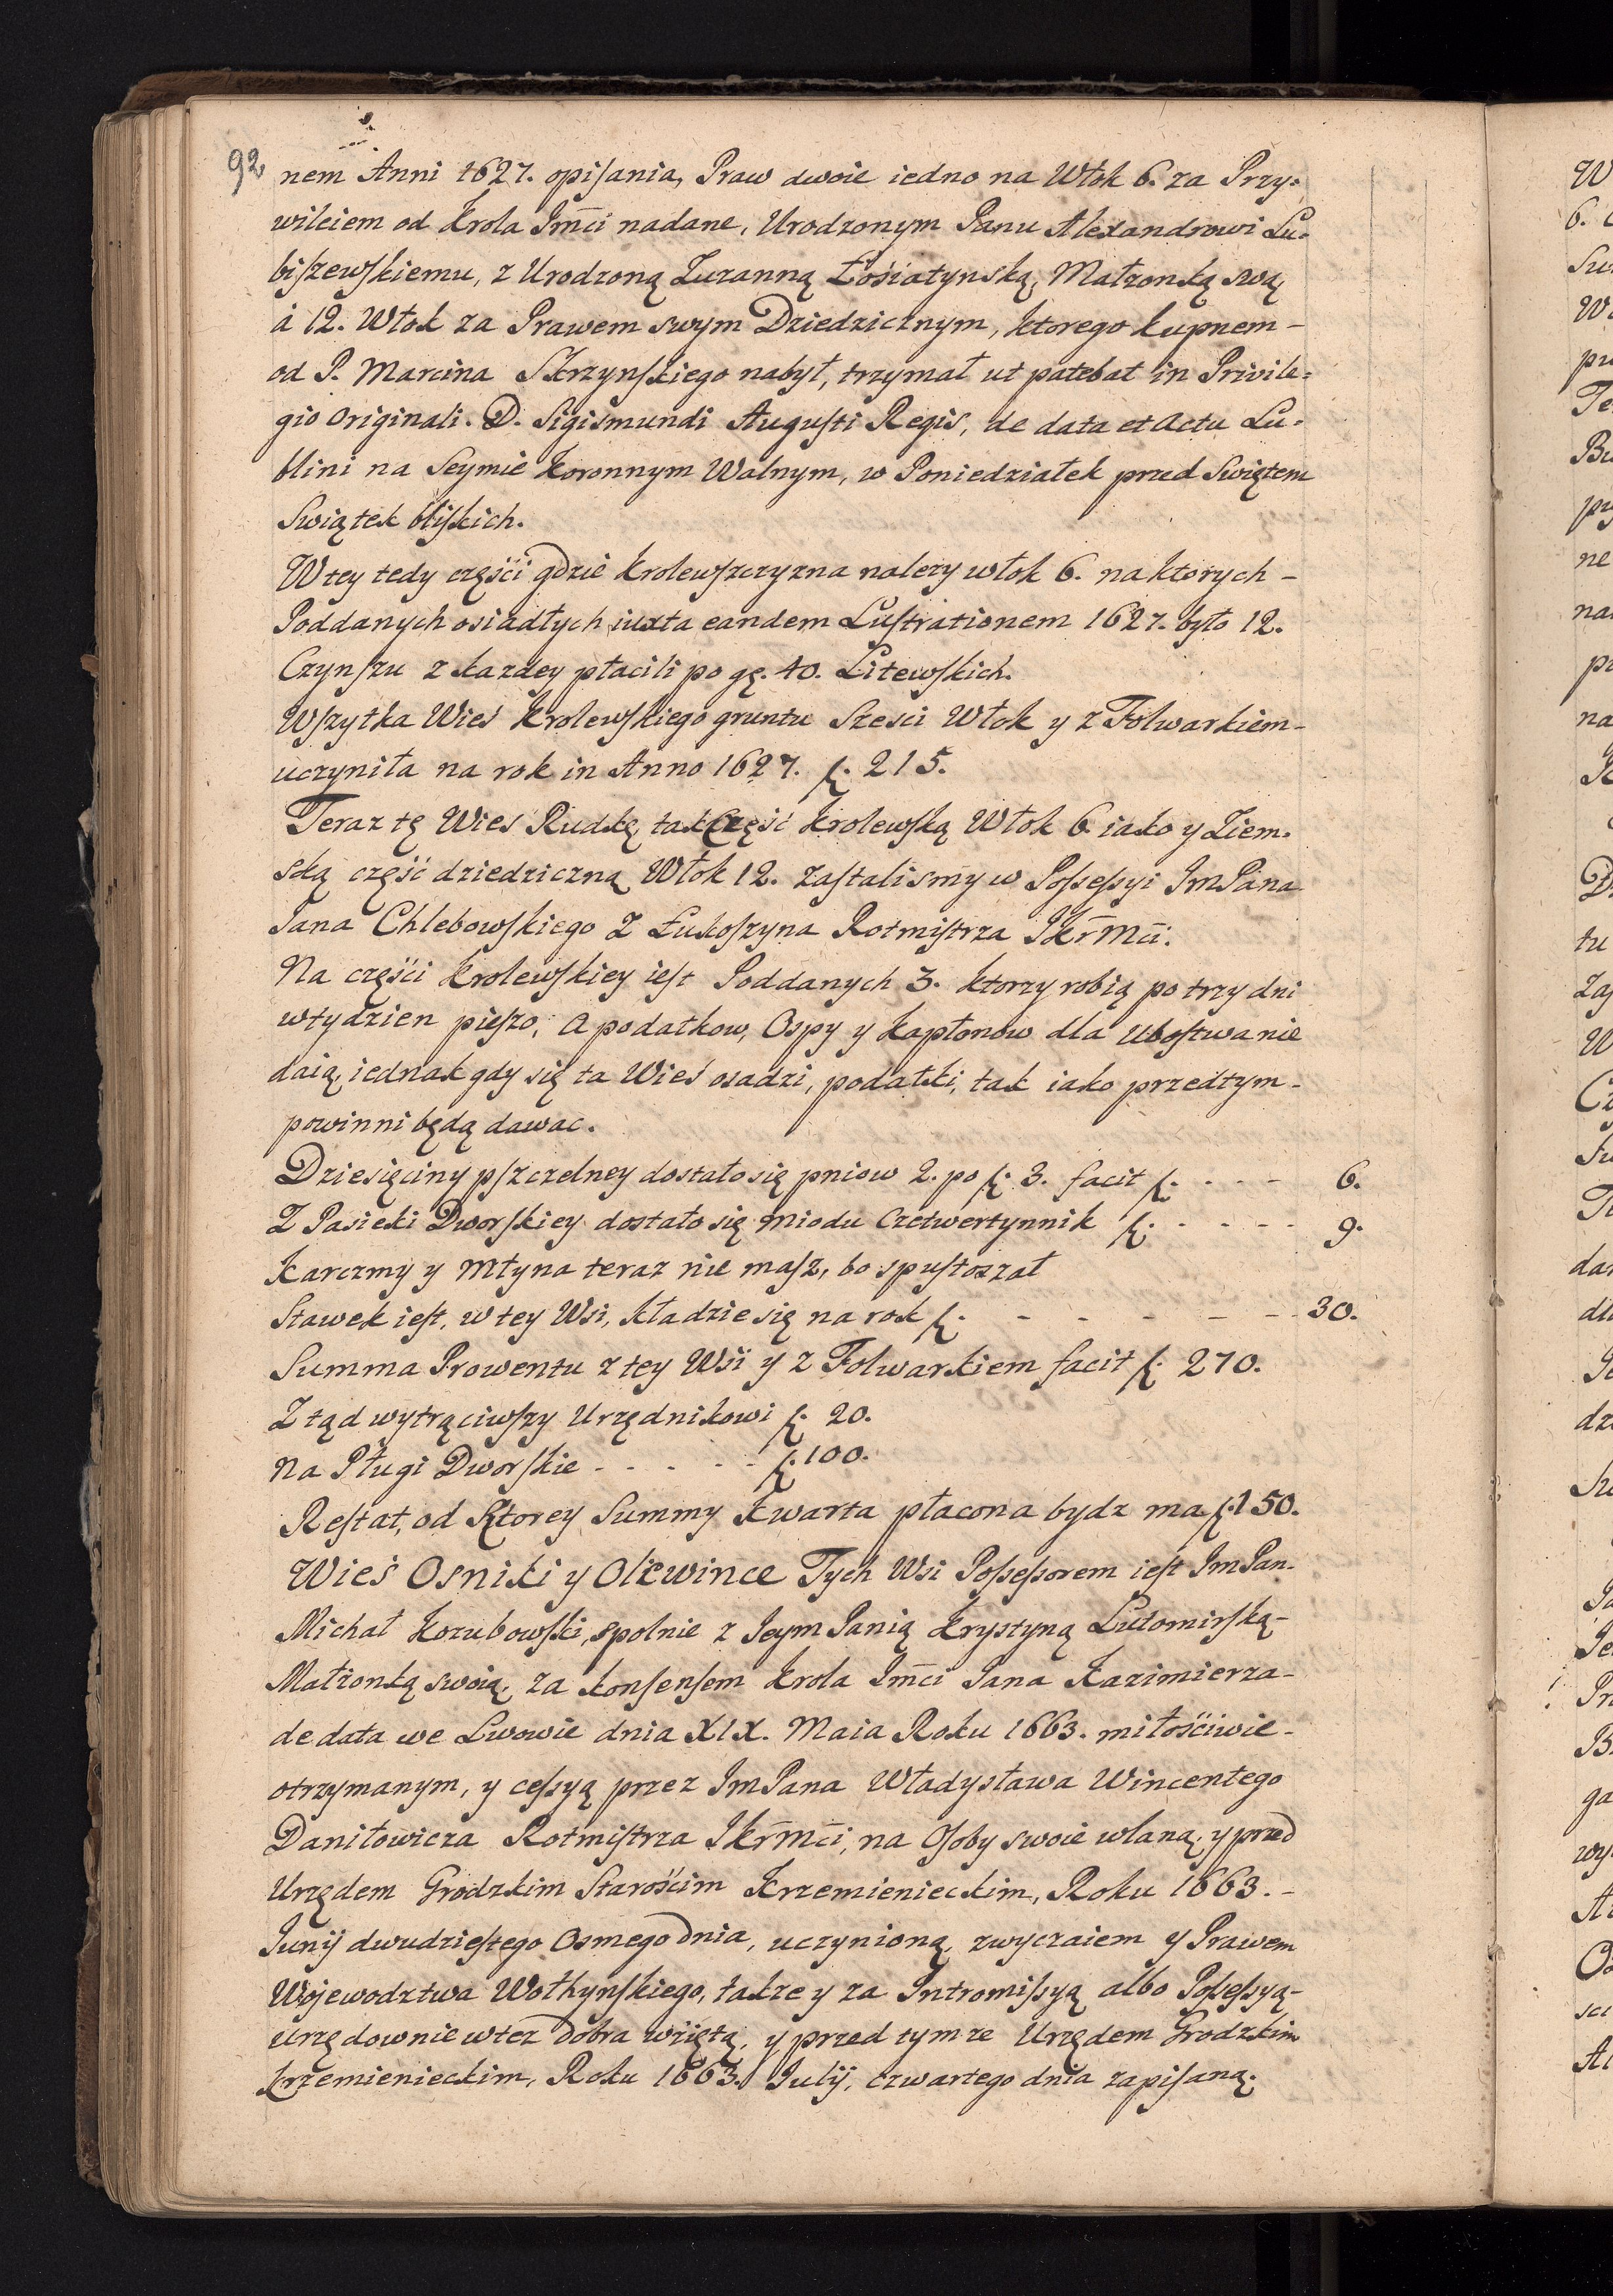 92
nem Anni 1627. opiſania, Praw dwoie iedno na Włok 6. za Przy=
wileiem od Krola Jm̃ci nadane, Urodzonym Panu Alexandrowi Lu=
biſzewſkiemu, z Urodzoną Zuzanną Łosiatynską, Małzonką swą,
á 12. Włok za Prawem swym Dziedzicznym, ktorego kupnem -
od P. Marcina Skrzynſkiego nabył, trzymał ut patebat in Privile=
gio Originali. D. Sigismundi Auguſti Regis, de data et Actu Lu=
blini na Seymie Koronnym Walnym, w Poniedziałek przed Swiętem
Swiątek bliſkich.
W tey tedy częśći gdzie Krolewſzczyzna nalezy włok 6. na ktorych -
Poddanych osiadłych iuxta eandem Luſtrationem 1627. było 12.
Czynſzu z kazdey płacili po gę. 40. Litewſkich.
Wſzytka Wieś Krolewſkiego gruntu Szesci Włok y z Folwarkiem -
uczyniła na rok in Anno 1627. ƒ. 215.
Teraz tę Wies Rudkę, tak Część Krolewſką Włok 6. iako y Ziem=
ską część dziedziczną Włok 12. zaſtalismy w Poſseſsyi Jm Pana
Jana Chlebowſkiego Z Łukoſzyna Rotmiſtrza JKr̃Mci.
Na częśći Krolewſkiey ieſt Poddanych 3. ktorzy robią po trzy dni
w tydzien pieſzo, A podatkow, Ospy y kapłonow dla Uboſtwa nie
daią, iednak gdy się ta Wieś osadzi, podatki, tak iako przedtym -
powinni będą dawac.
Dziesięciny pſzczelney dostało się pniow 2. po ƒ. 3. facit ƒ. - - - 6.
Z Pasieki Dworſkiey dostało się miodu Czetwertynnik ƒ. - - - - 9.
Karczmy y Młyna teraz nie maſz, bo spuſtoszał
Stawek ieſt, w tey Wsi, kładzie się na rok ƒ. - - - - - 30.
Summa Prowentu z tey Wśi y z Folwarkiem facit ƒ. 270.
Z tąd wytrąciwſzy Urzędnikowi ƒ. 20.
Na Pługi Dworſkie - - - - - ƒ. 100.
Reſtat, od Ktorey Summy Kwarta płacona bydz ma ƒ. 150.
Wieś Osniki y Olzwince Tych Wsi Poſseſsorem ieſt Jm Pan
Michał Kozubowſki, spolnie z Jeym Panią Krystyną Lutomirſką -
Małzonką swoią, za konſenſem Krola Jm̃ci Jana Kazimierza -
de data we Lwowie dnia XIX. Maia Roku 1663. miłośćiwie -
otrzymanym, y ceſsyą przez Jm Pana Władysława Wincentego
Daniłowicza Rotmiſtrza JKr̃Mci, na Oſoby swoie wlaną, y przed
Urzędem Grodzkim Starośćim Krzemienieckim, Roku 1663. -
Junij dwudzieſtego Osmego dnia, uczynioną, zwyczaiem y Prawem
Wojewodztwa Wołhynſkiego, takze y za Intromiſsyą albo Poſseſsyą -
urzędownie w tez dobra wźiętą, y przed tym ze Urzędem Grodzkim
Krzemienieckim, Roku 1663. Julij, czwartego dnia zapiſaną.